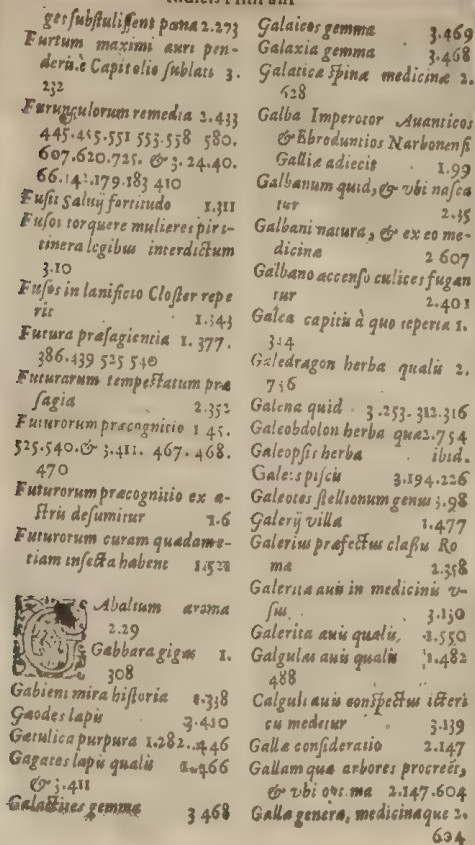 ges substulissent pœna 2.273
Furtum maximi auri pen-
deris è Capitolio sublati 3.
232
Furunculorum remedia 2.433
445.455.551 553.558 580.
607.620.725. & 3.24.40.
66.142.179.183 410
Fusii Saluij fortitudo 1.311
Fusos torquere mulieres per i-
tinera legibus interdictum
3.10
Fusos in lanificio Closter repe
rit 1.343
Futura præsagientia 1.377.
386.439 525 540
Futurarum tempestatum præ
sagia 2.352
Futurorum præcognitio 1 45.
525.540.& 3.411. 467.468.
470
Futurorum præcognitio ex a-
stris desumitur 1.6
Futurorum curam quædam e-
tiam insecta habent
GAbalium aroma
2.29
Gabbara gigas 1.
308
Gabieni mira historia 1.338
Gaodes lapis 3.410
Gætulica purpura 1.282..446
Gagates lapis qualis
& 3.411
Galactites gemma 3 468
Galaicos gemma 3.469
Galaxia gemma 3.468
Galatica spina medicinæ 2.
628
Galba Imperotor Auanticos
& Ebroduntios Narbonensi
Galliæ adiecit 1.99
Galbanum quid, & vbi nasca
tur 2.35
Galbani natura, & ex eo me-
dicina 2 607
Galbano accenso culices fugan
tur 2.401
Galea capitis à quo reperta 1.
334
Galedragon herba qualis 2.
736
Galena quid 3.253.312.316
Galeobdolon herba quæ 2.754
Galeopsis herba ibid.
Galeos piscis 3.194.226
Galeotes stellionum genus 3.98
Galerij villa 1.477
Galerius præfectus classis Ro
mæ 2.358
Galerita auis in medicinis v-
sus 3.130
Galerita auis qualis, 1.550
Galgulas auis qualis 1.482
488
Calguli auis conspectus icteri
cu medetur 3.139
Gallæ consideratio 2.147
Gallam quæ arbores procreēt,
& vbi opt.ma 2.147.604
Gallæ genera, medicinæque 2.
604